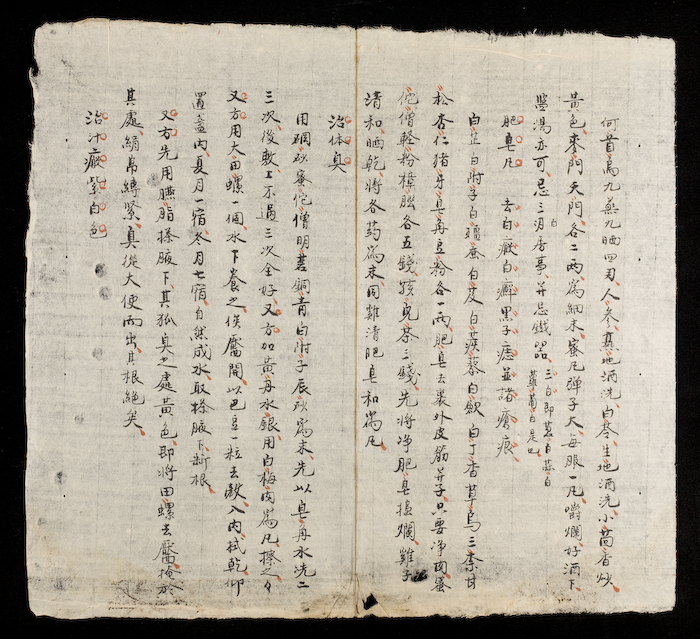 何首烏九蒸九晒四两人參熟地酒洗白苓生地酒洗小茴香炒
黃色麥門天門各二两為細末蜜凡彈子大每服一凡嚼爛好酒下
鹽湯亦可忌三白房事并忌鐵器三白即葱白蒜白蘿蔔白是也
肥皂凡 去白癜白癬黑子痣並諸瘡痕
白芷白附子白殭蚕白芨白蒺藜白歛白丁香草烏三柰甘
松杏仁猪牙皂再豆粉各一两肥皂去裹外皮筋并子只要净肉蜜
佗僧軽粉樟腦各五錢孩兒茶三錢先將净肥皂搥爛雞子
清和晒乾將各药為末同雞清肥皂和為凡
治体臭
用硇砂蜜佗僧明茗銅青白附子辰砂為末先以皂丹水洗二
三次後敷上不過三次全好又方加黃丹水銀用白梅肉為凡擦之々
又方用大田螺一個水下養之俟靨開以巴豆一粒去敖入内拭乾仰
置盞内夏月一宿冬月七宿自然成水取搽腋下断根
又方先用臙脂搽腋下其狐臭之處黃色即將田螺去靨掩於
其處絹帛縛緊真從大便而出其根絶矣
治汁癍紫白色